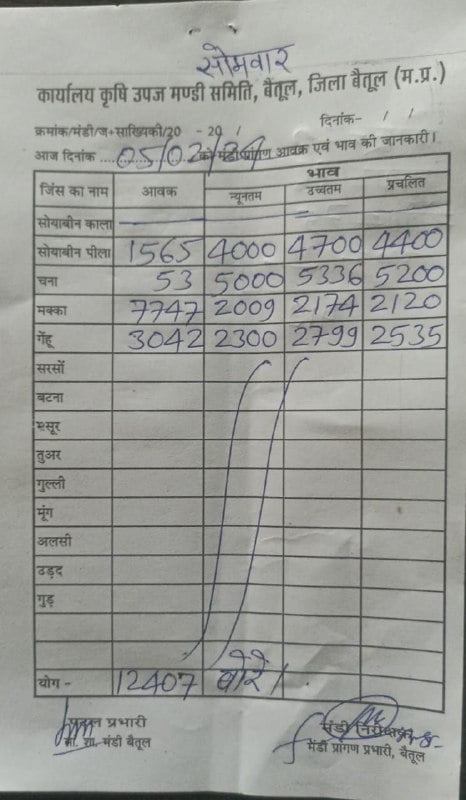 सोमवार
कार्यालय कृषि उपज मण्डी समिति, बैतूल, जिला बैतूल (म.प्र.)
दिनांक- / /
क्रमांक/मंडी/ज+सांख्यिकी/20 - 20 /
आज दिनांक 05/02/24 को मंडी प्रांगण आवक एवं भाव की जानकारी।
भाव
जिंस का नाम आवक न्यूनतम उच्चतम प्रचलित
सोयाबीन काला — — =
सोयाबीन पीला 1565 4000 4700 4400
चना 53 5000 5336 5200
मक्का 7747 2009 2174 2120
गेंहू 3042 2300 2799 2535
सरसों
बटना
मसूर
तुअर
गुल्ली
मूंग
अलसी
उड़द
गुड़
योग - 12407 बोरे।
प्रभारी
मंडी बैतूल
मंडी निरीक्षक
मंडी प्रांगण प्रभारी, बैतूल